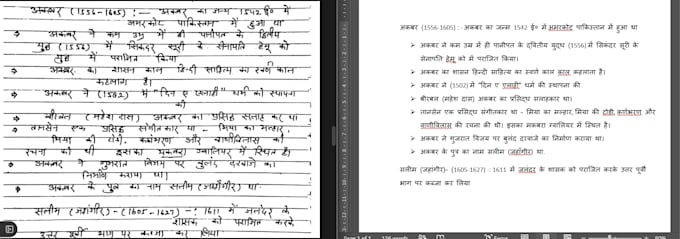 अकबर (1556-1605) :— अकबर का जन्म 1542 ई० में
अमरकोट पाकिस्तान में हुआ था
अकबर ने कम उम्र में ही पानीपत के द्वितीय
युद्ध (1556) में सिकंदर सूरी के सेनापति हेमू को
युद्ध में पराजित किया
अकबर का शासन काल हिन्दी साहित्य का स्वर्ण काल
कहलाता है।
अकबर ने (1582) में "दिन ए इलाही" धर्म की स्थापना
की
बीरबल (महेश दास) अकबर का प्रसिद्ध सलाहकार था
तानसेन एक प्रसिद्ध संगीतकार था - मियां का मल्हार,
मिया की टोडी, और
रचना की थी इसका मकबरा ग्वालियर में स्थित है।
अकबर ने गुजरात विजय पर बुलंद दरवाजे का
निर्माण कराया था।
अकबर के पुत्र का नाम सलीम (जहाँगीर) था
सलीम (जहांगीर) - (1605-1627) -: 1611 में के
शासक को पराजित करके
उत्तर पूर्वी भाग पर कब्जा कर लिया
अकबर (1556-1605) :- अकबर का जन्म 1542 ई० में अमरकोट पाकिस्तान में हुआ था
अकबर ने कम उम्र में ही पानीपत के द्वितीय युद्ध (1556) में सिकंदर सूरी के
सेनापति हेमू को में पराजित किया।
अकबर का शासन हिन्दी साहित्य का स्वर्ण काल काल कहलाता है।
अकबर ने (1502) में "दिन ए इलाही" धर्म की स्थापना की
बीरबल (महेश दास) अकबर का प्रसिद्ध सलाहकार था।
तानसेन एक प्रसिद्ध संगीतकार था - मिया का मल्हार, मिया की टोडी, और
की रचना की थी। इसका मकबरा ग्वालियर में स्थित है।
अकबर ने गुजरात विजय पर बुलंद दरवाजे का निर्माण कराया था।
अकबर के पुत्र का नाम सलीम (जहाँगीर) था.
सलीम (जहांगीर)- (1605-1627) -: 1611 में के शासक को पराजित करके उत्तर पूर्वी
भाग पर कब्जा कर लिया